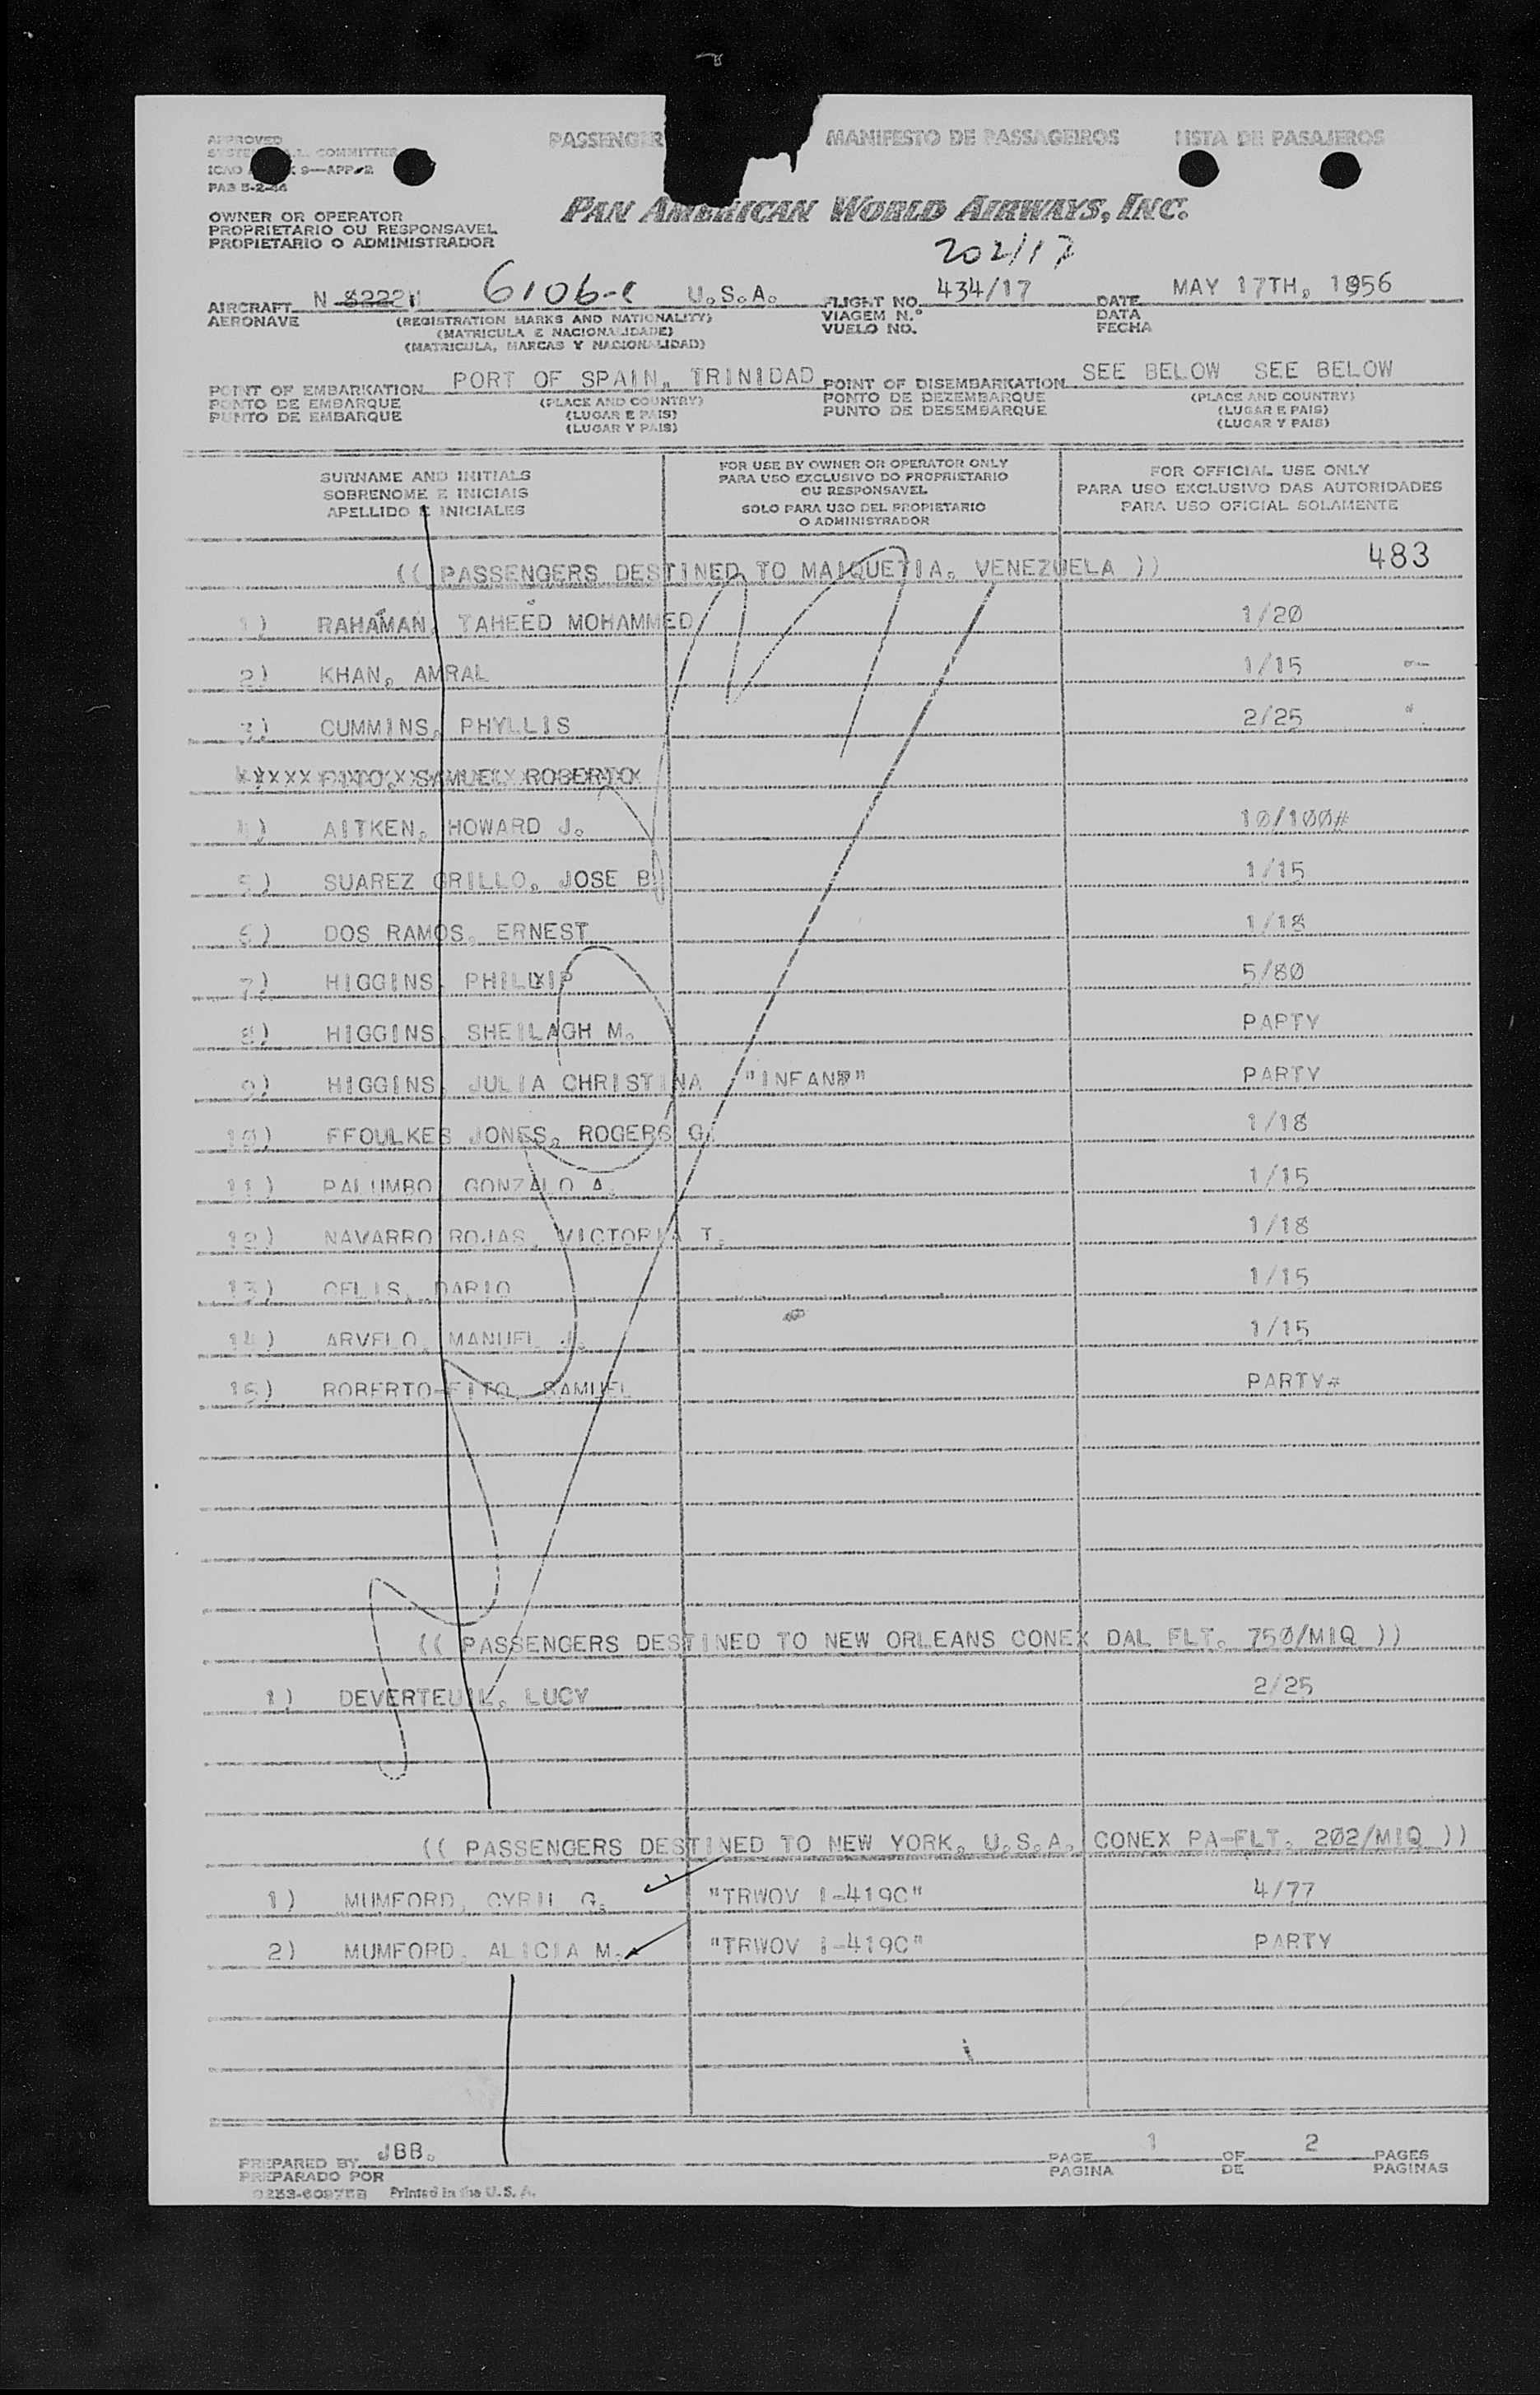 APPROVED
COMMITTEE
ICAO 9—APP. 2
PAB 5-2-44
PASSENGER MANIFESTO DE PASSAGEIROS LISTA DE PASAJEROS
PAN AMERICAN WORLD AIRWAYS, INC.
OWNER OR OPERATOR
PROPRIETARIO OU RESPONSAVEL
PROPIETARIO O ADMINISTRADOR
202/17
AIRCRAFT N 6106-C U.S.A. FLIGHT NO. 434/17 DATE MAY 17TH, 1956
AERONAVE (REGISTRATION MARKS AND NATIONALITY) VIAGEM N.º DATA
(MATRICULA E NACIONALIDADE) VUELO NO. FECHA
(MATRICULA, MARCAS Y NACIONALIDAD)
POINT OF EMBARKATION PORT OF SPAIN, TRINIDAD POINT OF DISEMBARKATION SEE BELOW SEE BELOW
PONTO DE EMBARQUE (PLACE AND COUNTRY) PONTO DE DEZEMBARQUE (PLACE AND COUNTRY)
PUNTO DE EMBARQUE (LUGAR E PAIS) PUNTO DE DESEMBARQUE (LUGAR E PAIS)
(LUGAR Y PAIS) (LUGAR Y PAIS)
SURNAME AND INITIALS
SOBRENOME E INICIAIS
APELLIDO E INICIALES
FOR USE BY OWNER OR OPERATOR ONLY
PARA USO EXCLUSIVO DO PROPRIETARIO
OU RESPONSAVEL
SOLO PARA USO DEL PROPIETARIO
O ADMINISTRADOR
FOR OFFICIAL USE ONLY
PARA USO EXCLUSIVO DAS AUTORIDADES
PARA USO OFICIAL SOLAMENTE
483
(( PASSENGERS DESTINED TO MAIQUETIA, VENEZUELA ))
1) RAHAMAN, TAHEED MOHAMMED 1/20
2) KHAN, AMRAL 1/15
3) CUMMINS, PHYLLIS 2/25
SAMUEL ROBERTO
4) AITKEN, HOWARD J. 10/100#
5) SUAREZ GRILLO, JOSE B. 1/15
6) DOS RAMOS, ERNEST 1/18
7) HIGGINS, PHILLIP 5/80
8) HIGGINS, SHEILAGH M. PARTY
9) HIGGINS, JULIA CHRISTINA "INFANT" PARTY
10) FFOULKES JONES, ROGERS G. 1/18
11) PALUMBO, GONZALO A. 1/15
12) NAVARRO ROJAS, VICTORIA T. 1/18
13) CELIS, DARIO 1/15
14) ARVELO, MANUEL J. 1/15
15) ROBERTO-FITO, SAMUEL PARTY#
(( PASSENGERS DESTINED TO NEW ORLEANS CONEX DAL FLT. 750/MIQ ))
1) DEVERTEUIL, LUCY 2/25
(( PASSENGERS DESTINED TO NEW YORK, U.S.A. CONEX PA-FLT. 202/MIQ ))
1) MUMFORD, CYRIL G. "TRWOV I-419C" 4/77
2) MUMFORD, ALICIA M. "TRWOV I-419C" PARTY
PREPARED BY JBB. PAGE 1 OF 2 PAGES
PREPARADO POR PAGINA DE PAGINAS
Printed in the U. S. A.